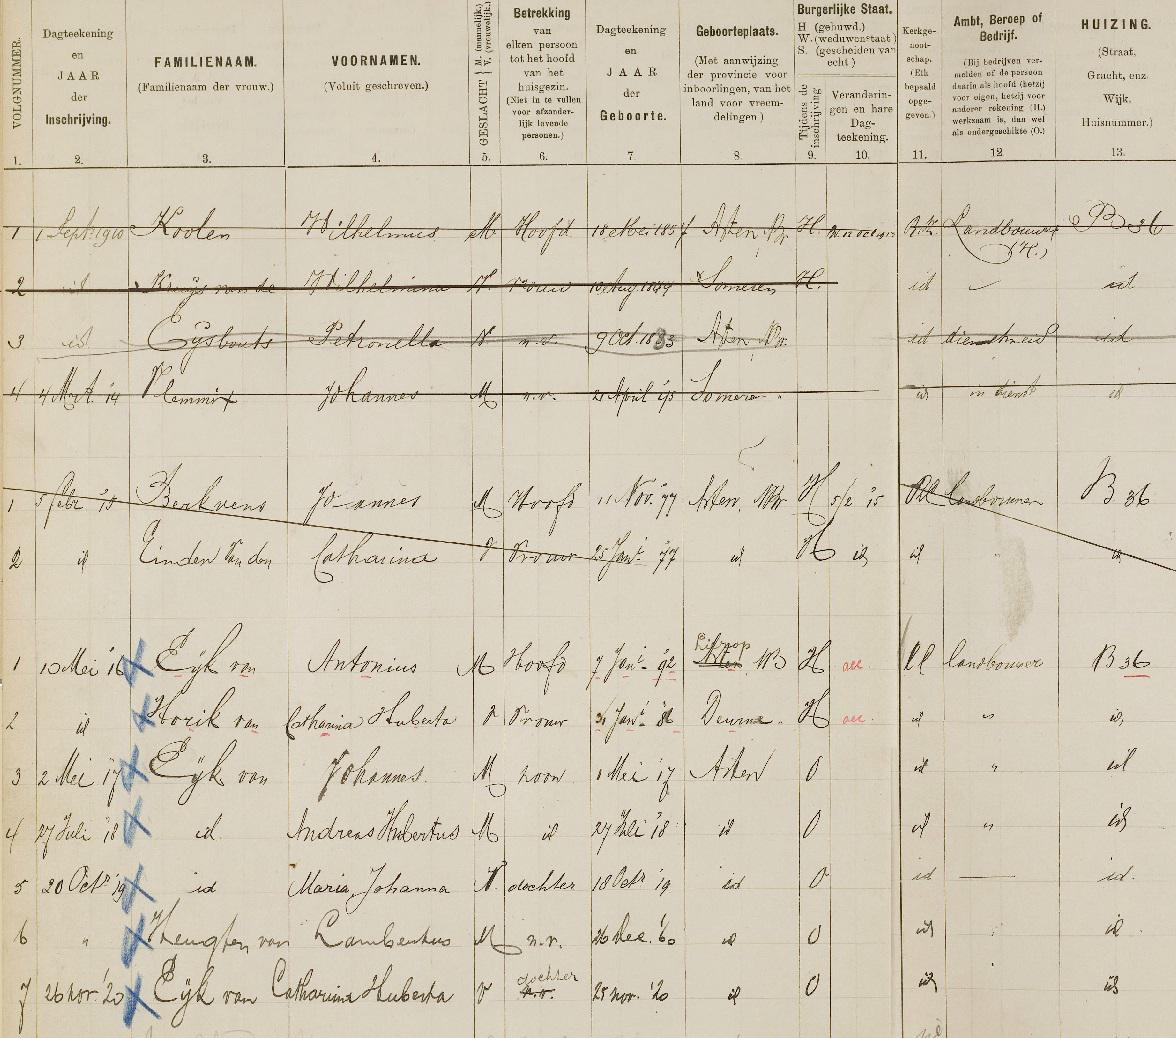 VOLGNUMMER. 1.
Dagteekening en JAAR der Inschrijving. 2.
FAMILIENAAM. (Familienaam der vrouw.) 3.
VOORNAMEN. (Voluit geschreven.) 4.
GESLACHT M. (mannelijk.) V. (vrouwelijk.) 5.
Betrekking van elken persoon tot het hoofd van het huisgezin. (Niet in te vullen voor afzonderlijk levende personen.) 6.
Dagteekening en JAAR der Geboorte. 7.
Geboorteplaats. (Met aanwijzing der provincie voor inboorlingen, van het land voor vreemdelingen) 8.
Burgerlijke Staat. H (gehuwd.) W. (weduwenstaat) S. (gescheiden van echt) Tijdens de inschrijving 9. Veranderingen en hare Dagteekening. 10.
Kerkgenootschap. (Elk bepaald opgegeven.) 11.
Ambt, Beroep of Bedrijf. (Bij bedrijven vermelden of de persoon daarin als hoofd (hetzij voor eigen, hetzij voor anderer rekening (H.) werkzaam is, dan wel als ondergeschikte (O.) 12
HUIZING. (Straat, Gracht, enz. Wijk. Huisnummer.) 13.
1 1 Sept. 1910 Koolen Wilhelmus M Hoofd 18 Mei 1857 Asten NB. H. R.K. Landbouwer (H.) B 36
2 id Kruijs van de Wilhelmina V. vrouw 10 Aug 1849 Someren H. id id
3 id Eijsbouts Petronella V n.v. 9 Oct. 1883 Asten NB. id dienstmeid id
4 4 Mrt. '14 Vlemmix Johannes M n.v. 21 April '95 Someren id in dienst id
1 5 febr '15 Berkvens Johannes M Hoofd 11 Nov. '77 Asten NBr H 5/2 '15 RK landbouwer B 36
2 id Linden van den Catharina V Vrouw 25 Jan. '77 id H id id " id
1 10 Mei '16 Eijk van Antonius M Hoofd 7 Jan. '92 Lierop Asten NB H acc. RK landbouwer B 36
2 id Horik van Catharina Huberta V Vrouw 31 Jan. '86 Deurne H acc. id " id
3 2 Mei '17 Eijk van Johannes. M zoon 1 Mei '17 Asten O id " id
4 27 Juli '18 id Andreas Hubertus M id 27 Juli '18 id O id " id
5 20 Octr '19 id Maria Johanna V. dochter 18 Octr '19 id O id — id.
6 " Heugten van Lambertus M n.v. 26 Dec. '60 id O id id
7 26 nov. '20 Eijk van Catharina Huberta V dochter n.v. 25 nov. '20 id O id id